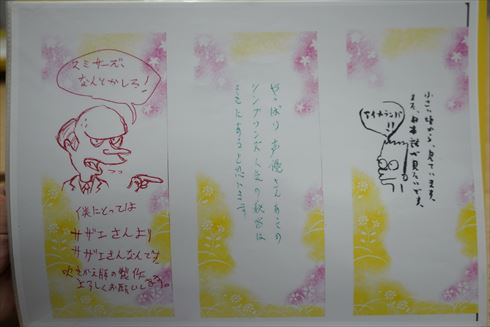 スミサーズ
なんとかしろ!
僕にとっては
サザエさんより
サザエさんなんです!
吹きかえ版の製作
よろしくお願いします。
やっぱり声優さんあっての
シンプソンズ人気の秘密は
あると思います
小さい頃から、見ています。
また、日本語が見たいです。